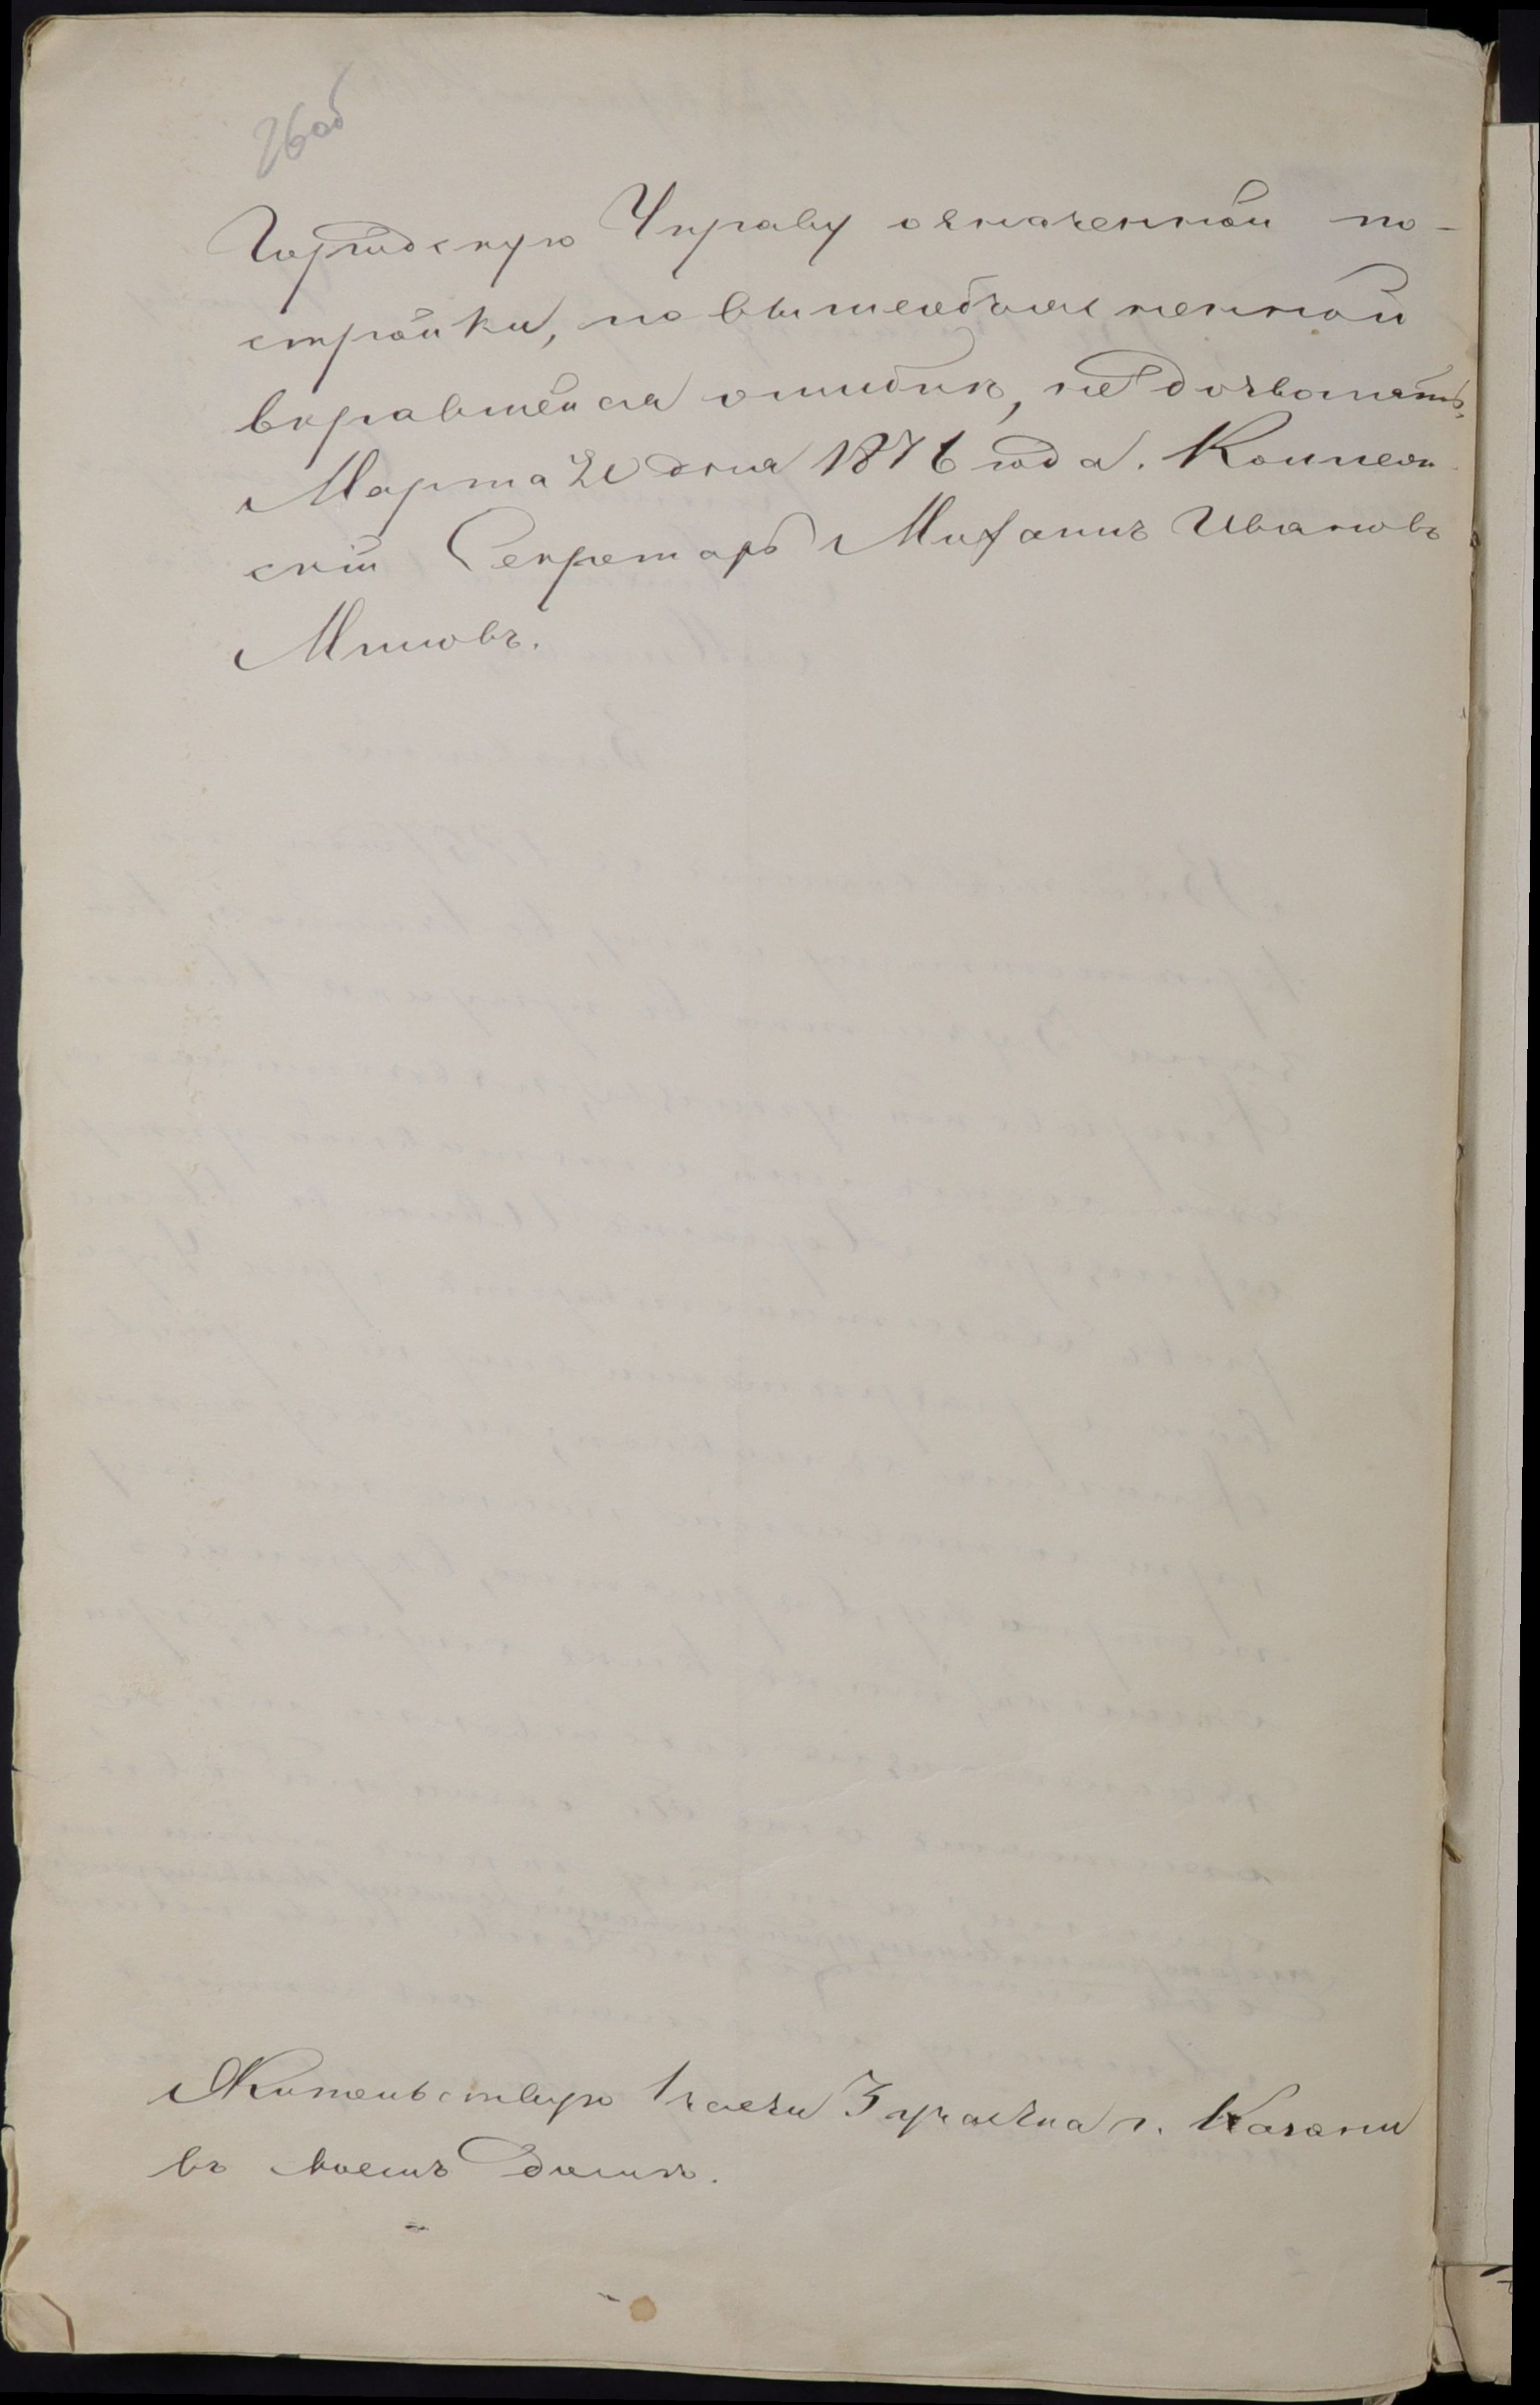 26 об
Городскую Управу означенной по-
стройки, по вышеобъясненной
вкравшейся ошибкѣ, не дозволять.
Марта 20 дня 1876 года. Коллеж
скій Секретарь Михаилъ Ивановъ

Жительствую 1 части 3 участка г. Казани
въ моемъ домѣ.